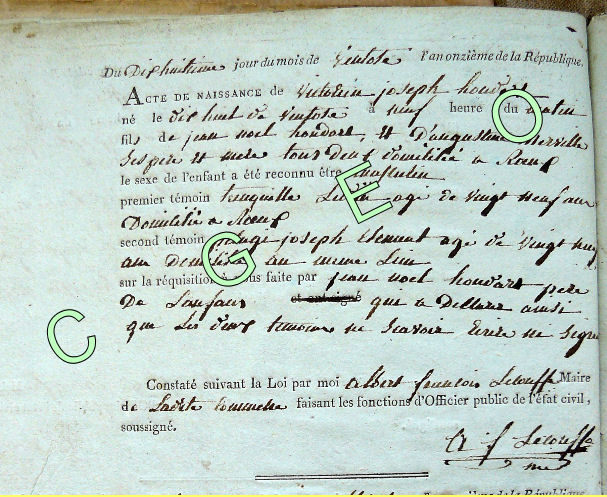 Du Dixhuitieme jour du mois de Ventose l'an onzième de la République.
ACTE DE NAISSANCE de Victorin joseph houdart
né le dix huit de Ventose à neuf heure du matin
fils de jean noel houdart, et D'augustine
Ses pere et mere tous deux domicilié a Rœux
le sexe de l'enfant a été reconnu être masculin
premier témoin agé de vingt neuf ans
Domicilié a Rœux
second témoin joseph Clement agé de vingt neuf
ans Domicilié au meme Lieu
sur la réquisition à nous faite par jean noel houdart pere
De L'enfant et ont signé que a Declaré ainsi
que Les deux temoins ne scavoir Ecrire ne Signer
Constaté suivant la Loi par moi albert françois Letouffe Maire
de Ladite Commune faisant les fonctions d'Officier public de l'état civil,
soussigné.
A f Letouffe
C G E O